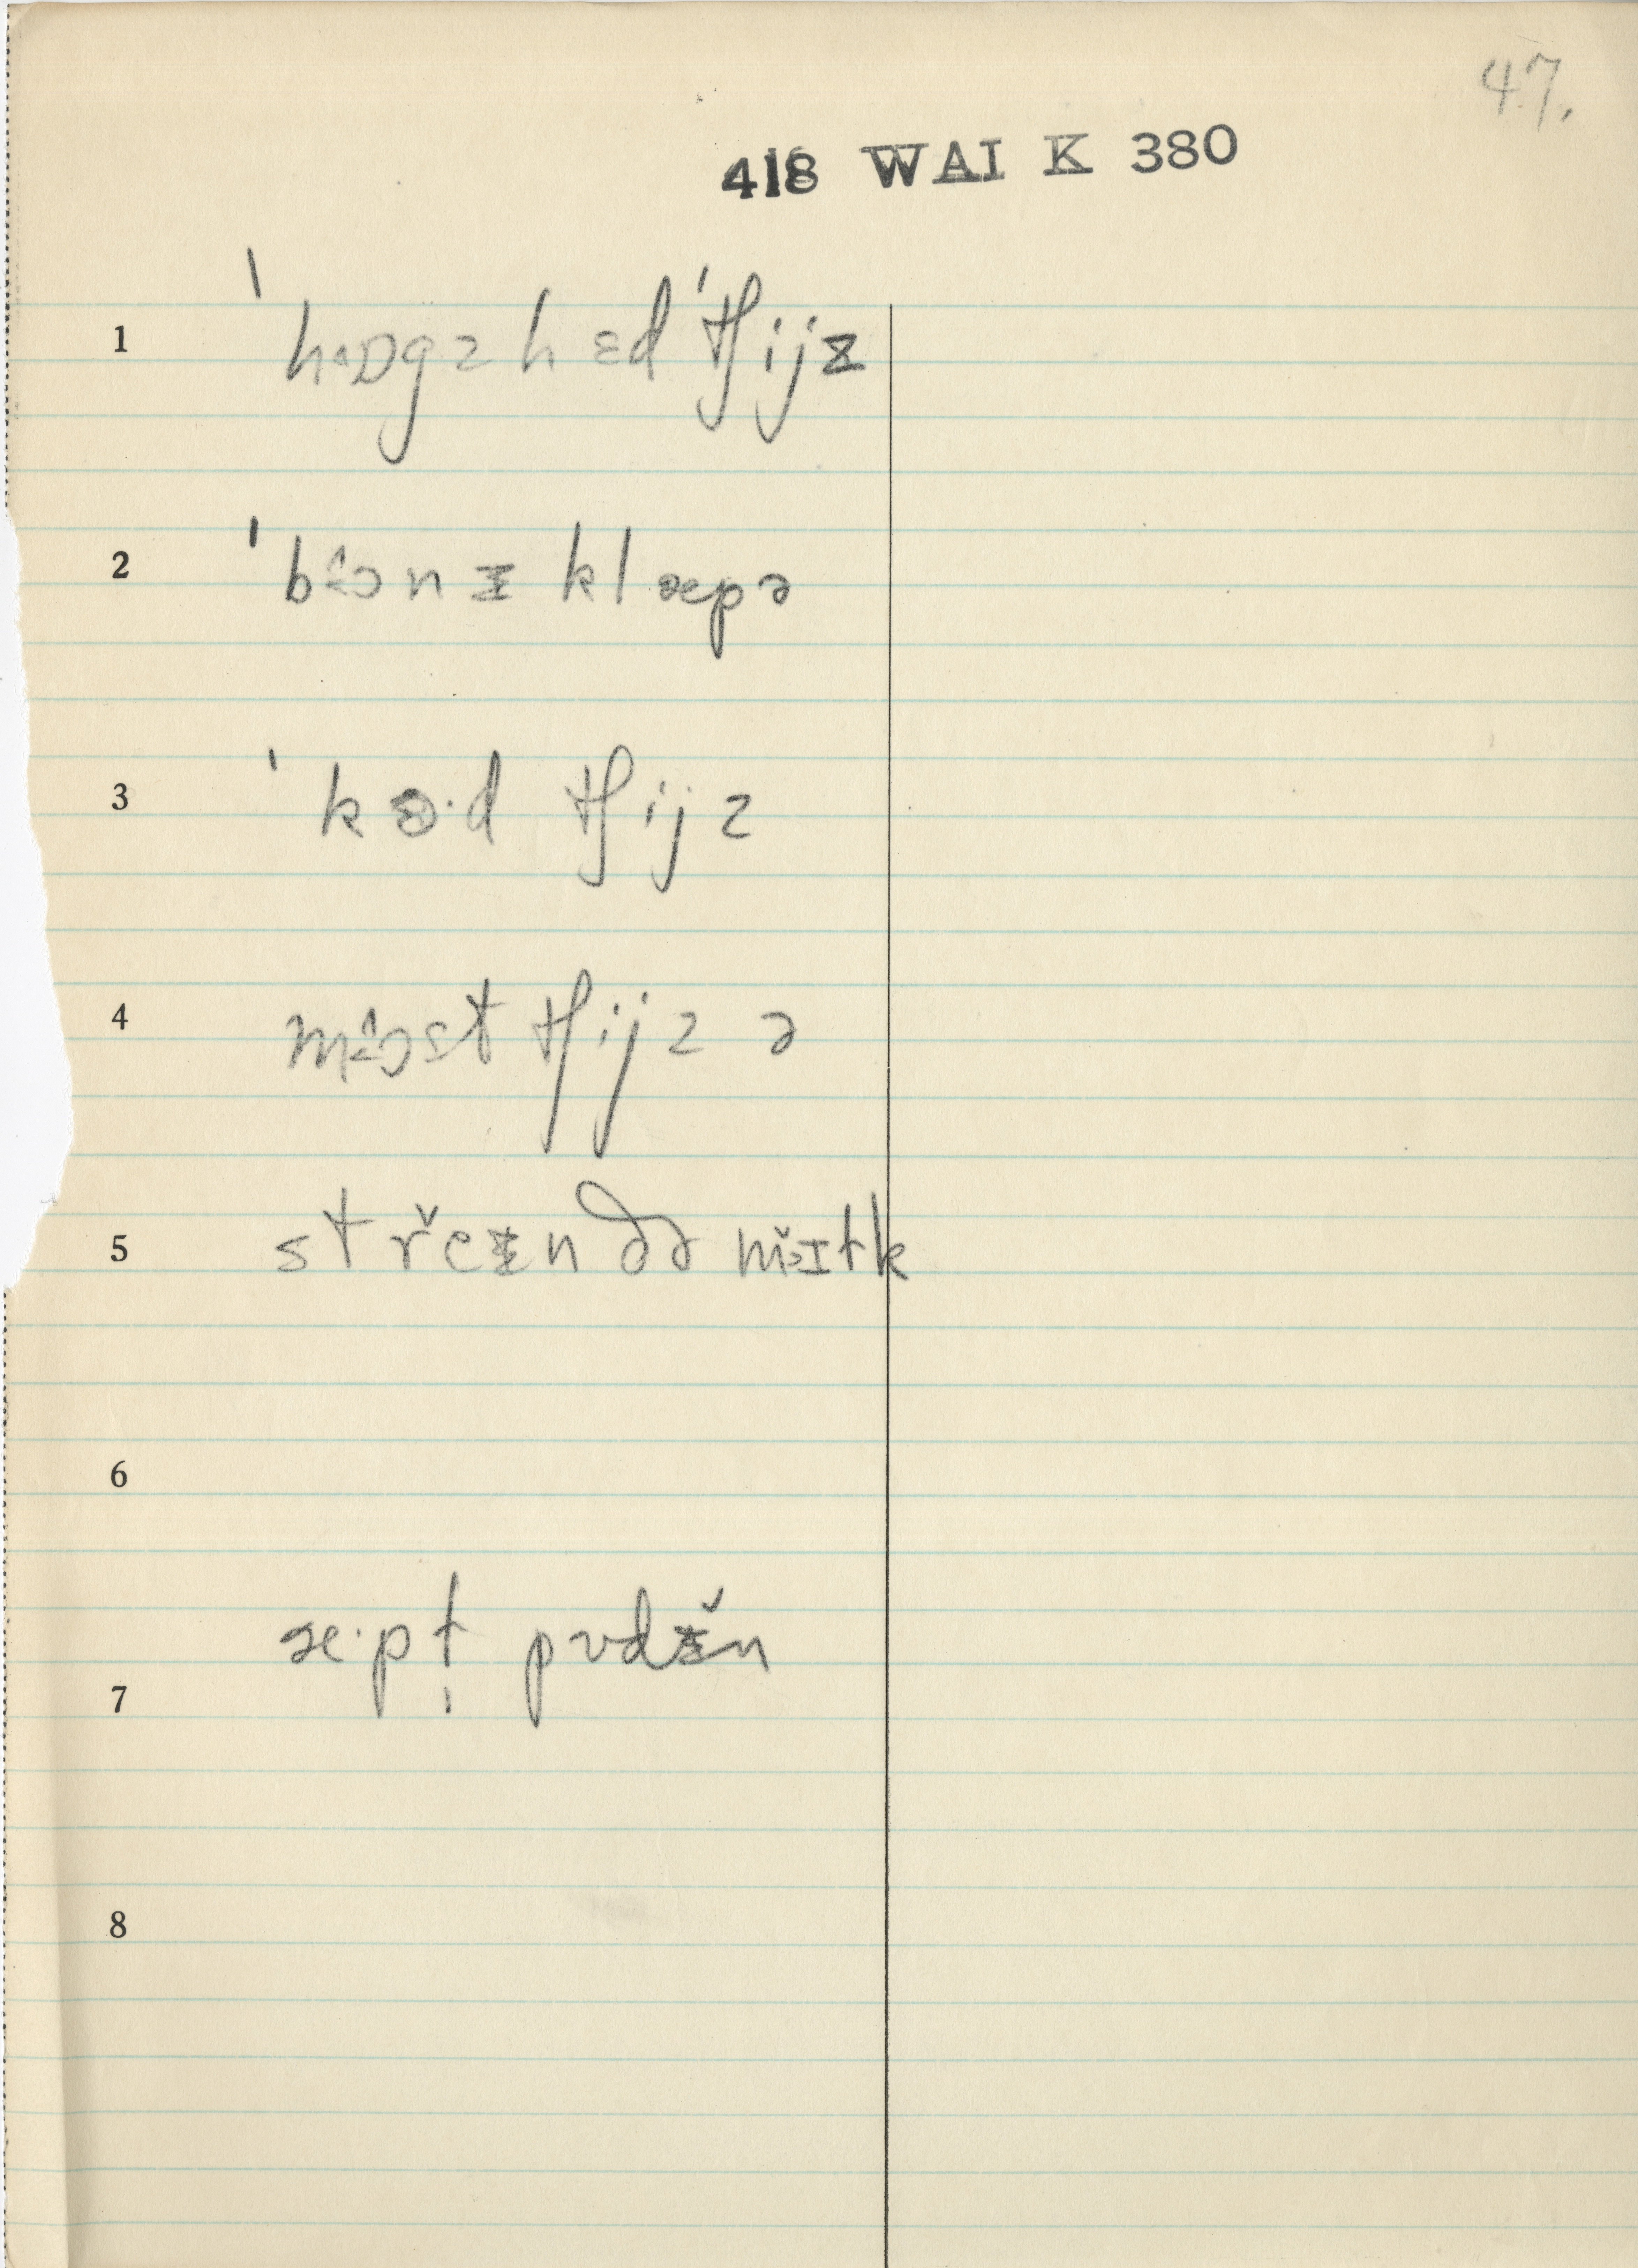 47.
418 WAI K 380
1 ˈhɒgz hɛd ˈtʃijz
2 ˈbɔ̂nɨ klæpə
3 ˈkɵ·d tʃijz
4 mɔ̂st tʃijz ə
5 st r̆eɨn də mɪtk
6
æ·pt̩ pvdɨ̆n
7
8